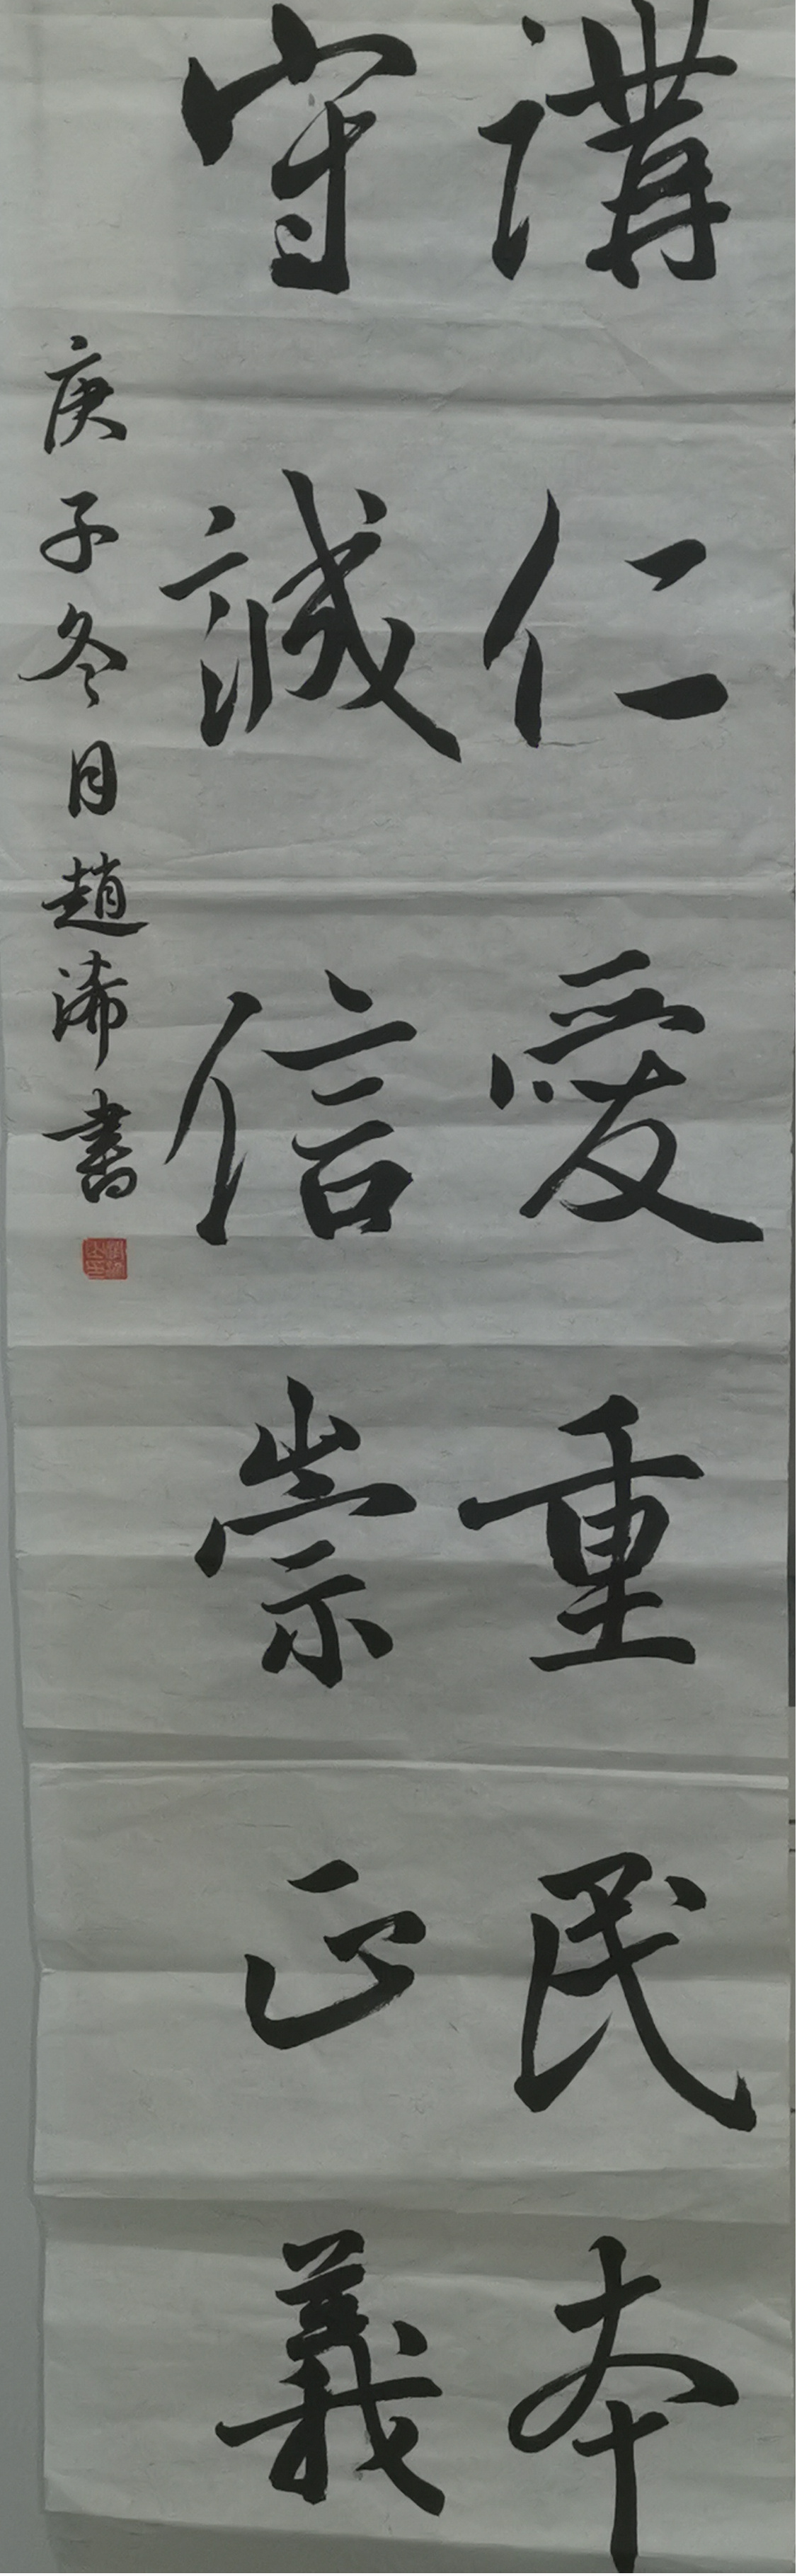 講仁愛重民本
守誠信崇正義
庚子冬月趙浠書